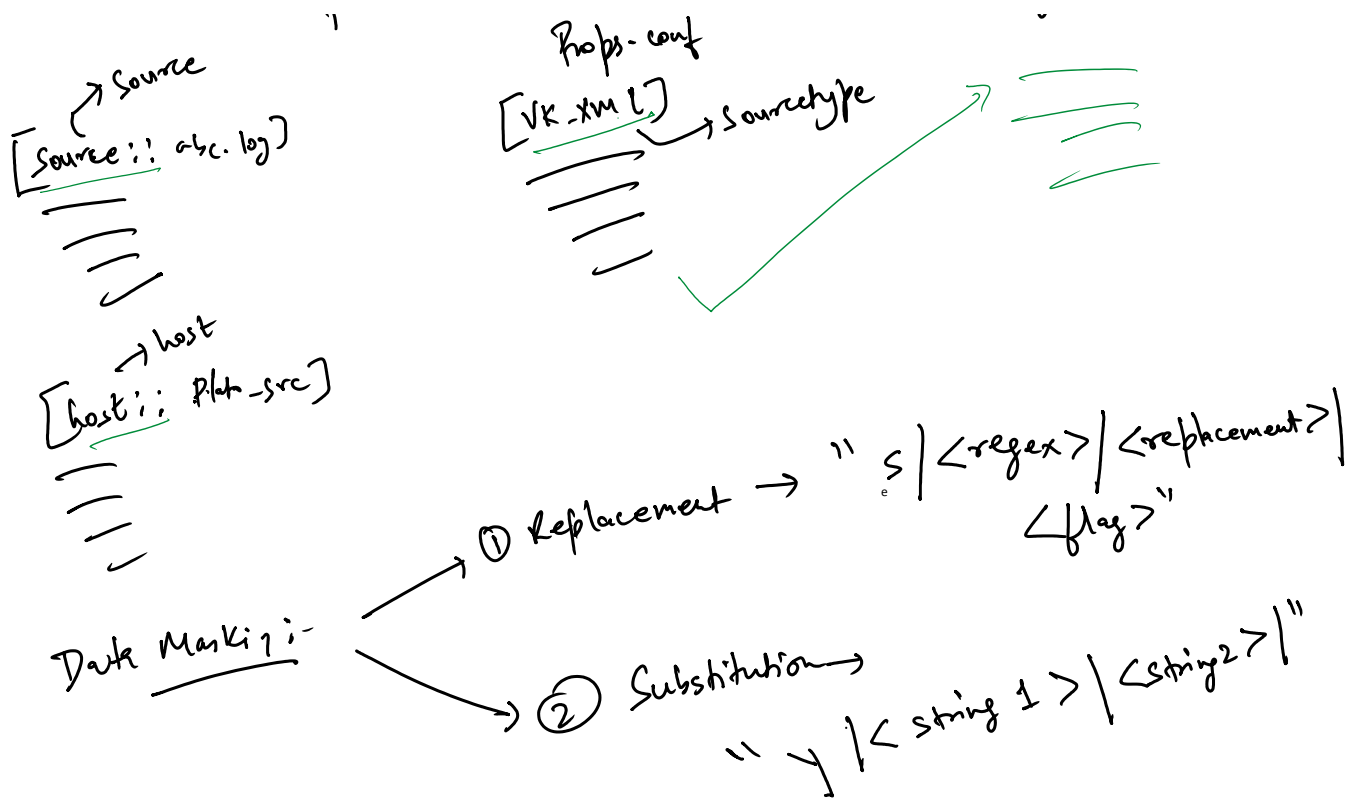 Props.conf
Source
[Source:: abc.log]
[VK_xml]
sourcetype
host
[host:: _src]
Data Masking:-
① Replacement → " s|<regex>|<replacement>|
<flag>"
② Substitution →
"y|<string 1>|<string2>|"
e